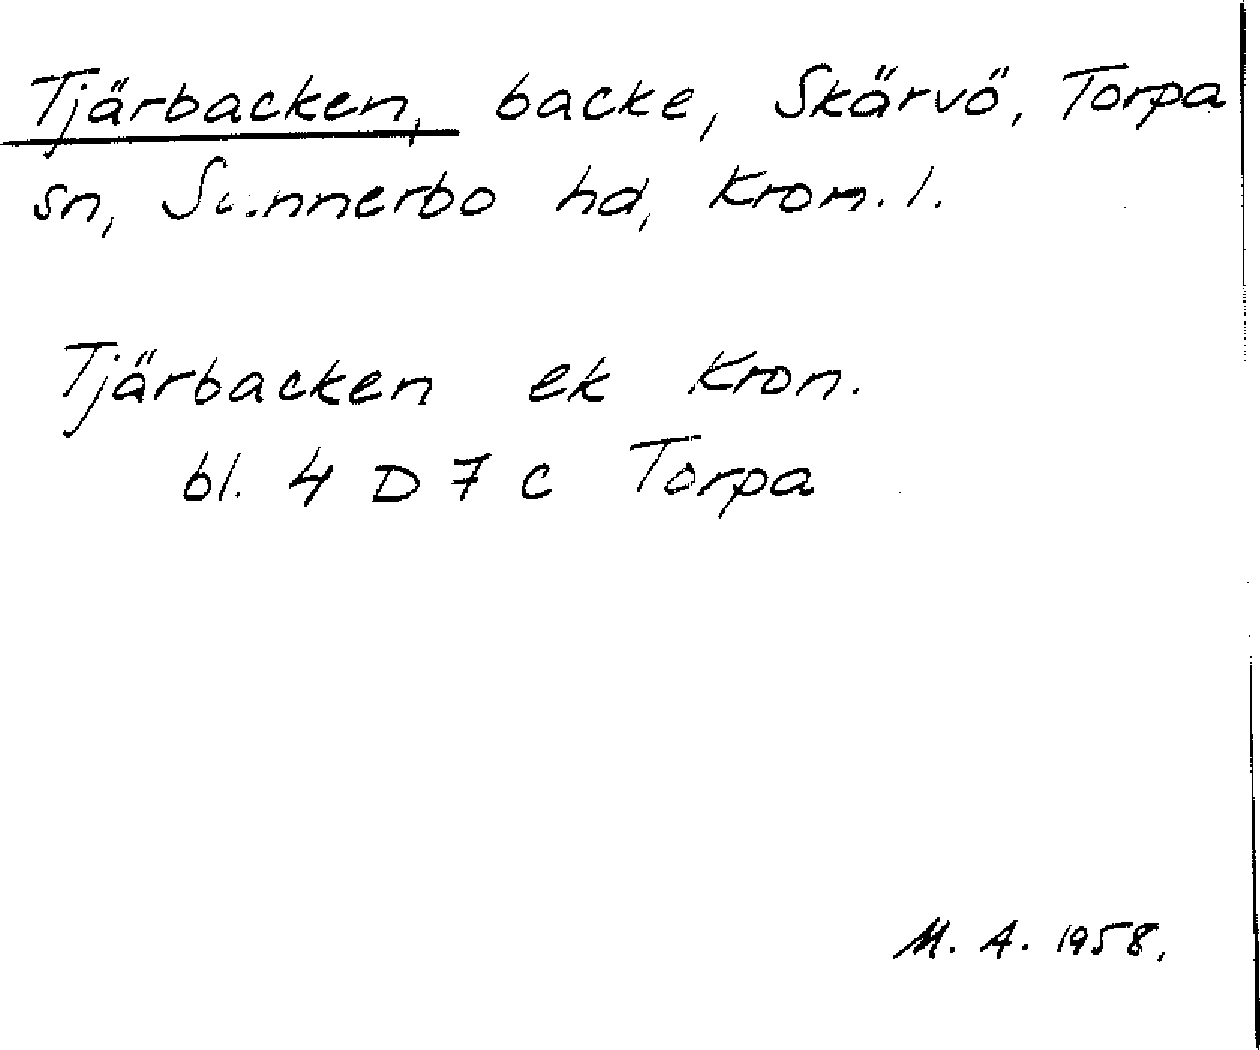 Tjärbacken, backe, Skärvö, Torpa
sn, Sunnerbo hd, Kron. l.
Tjärbacken ek Kron.
bl. 4 D 7 c Torpa
M. A. 1958.